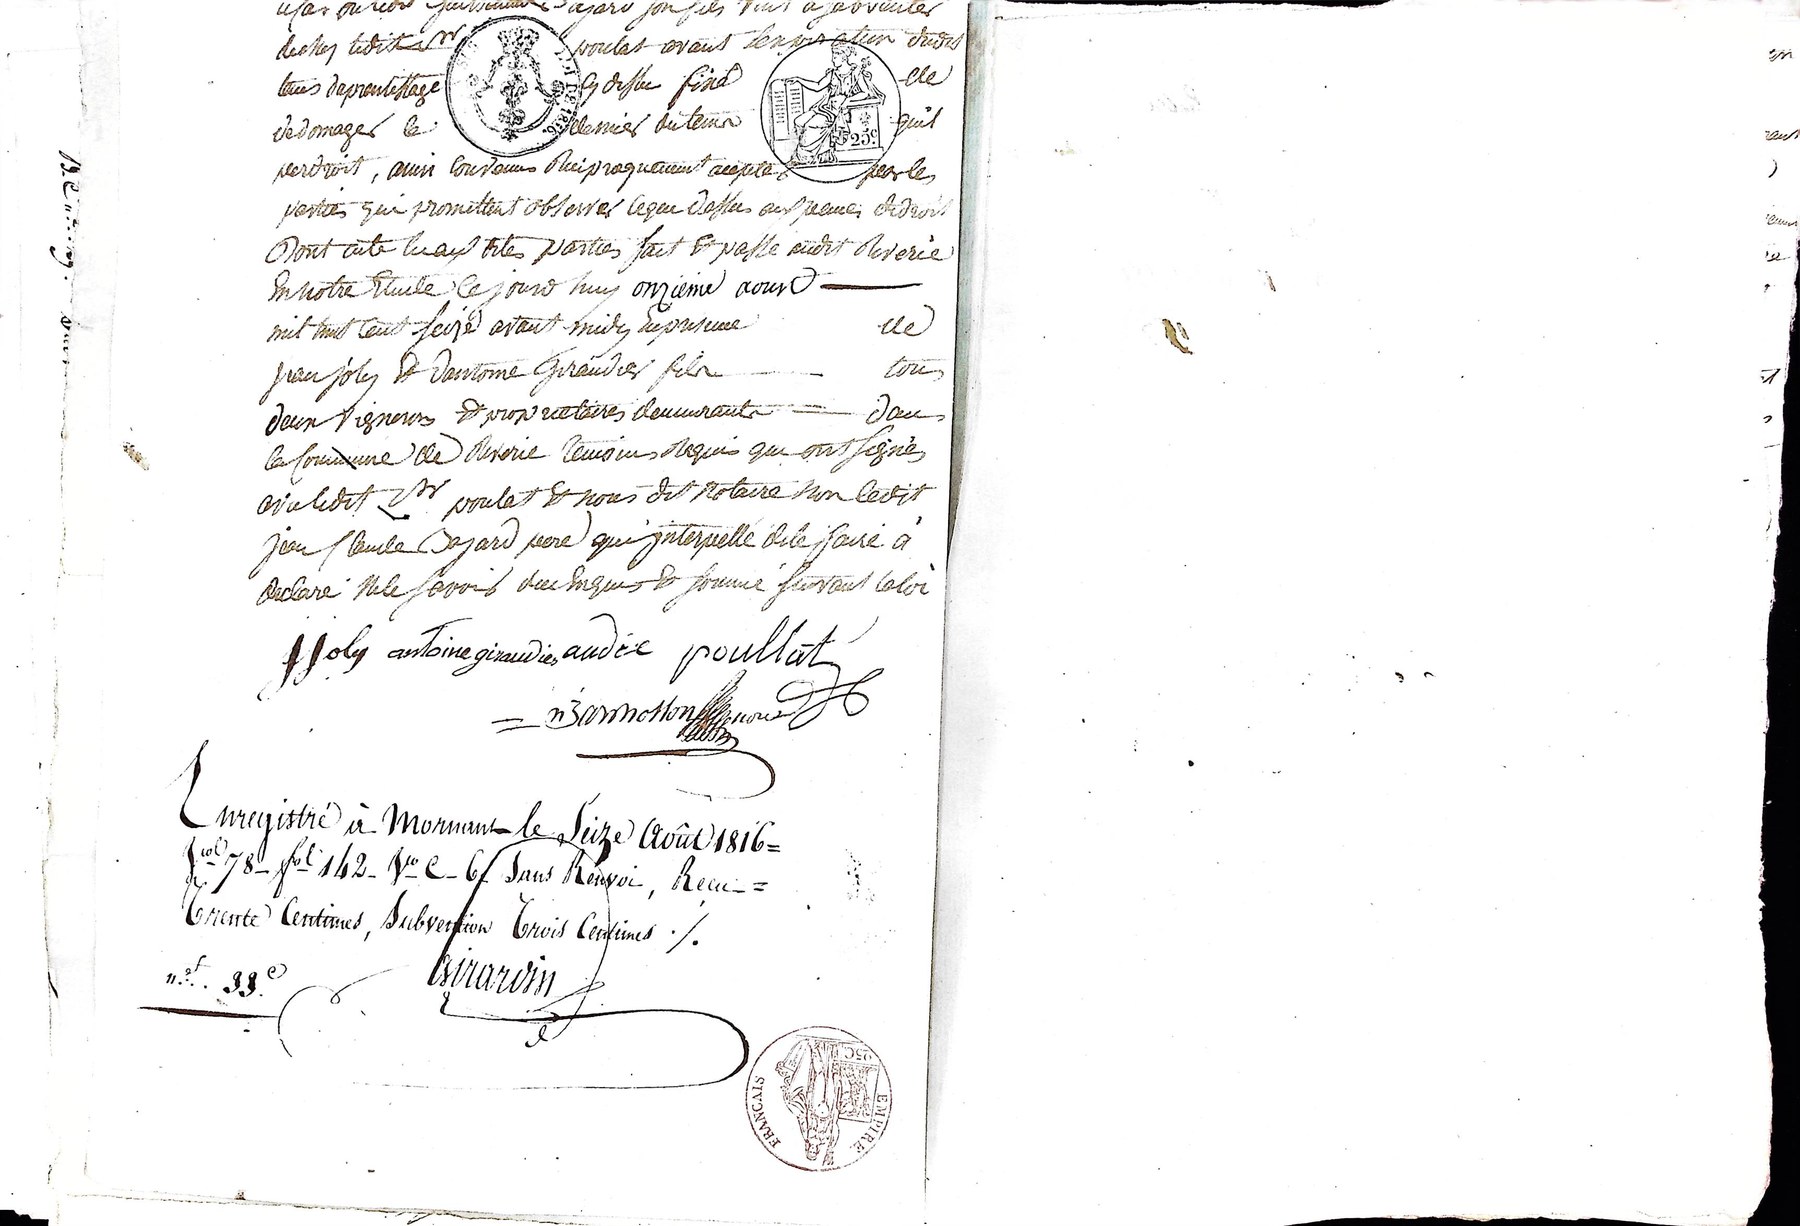 ledit Guillaume Bajard son fils vint a sabsenter
deches ledit Sr poulat avant lexpiration dudit
tems daprentissage cy dessu fixé de
dedomager le dernier du tems quil
perdroit, ainsi convenus Reciproquement acceptés par les
parties qui promettent observer ceque dessus aux peines dedroit
Dont acte lu aux dites parties fait et passé audit Riverie
En notre Etude Ce jourd huy onzieme aoust
mil huit Cent Seize avant midy En presence de
Jean Joly et dantoine Giraudier fils tous
deux Vignerons et proprietaires demeurants dans
la Commune de Riverie temoins Requis qui ont signés
avec ledit Sr poulat et nous dit Notaire non ledit
jean Claude Bajard pere qui interpellé dele faire à
declaré Nele savoir de ce Enquis et sommé suivant laloi
JJoly antoine giraudier andré poullat
Enregistré à Mornant le Seize Août 1816 =
Vol. 78 - fol. 142 - Vo C - 6 Sans Renvoi, Recu =
Trente Centimes, Subvention Trois Centimes ./.
Girardin
33.c
DE 1816
25c.
EMPIRE FRANCAIS
25C.